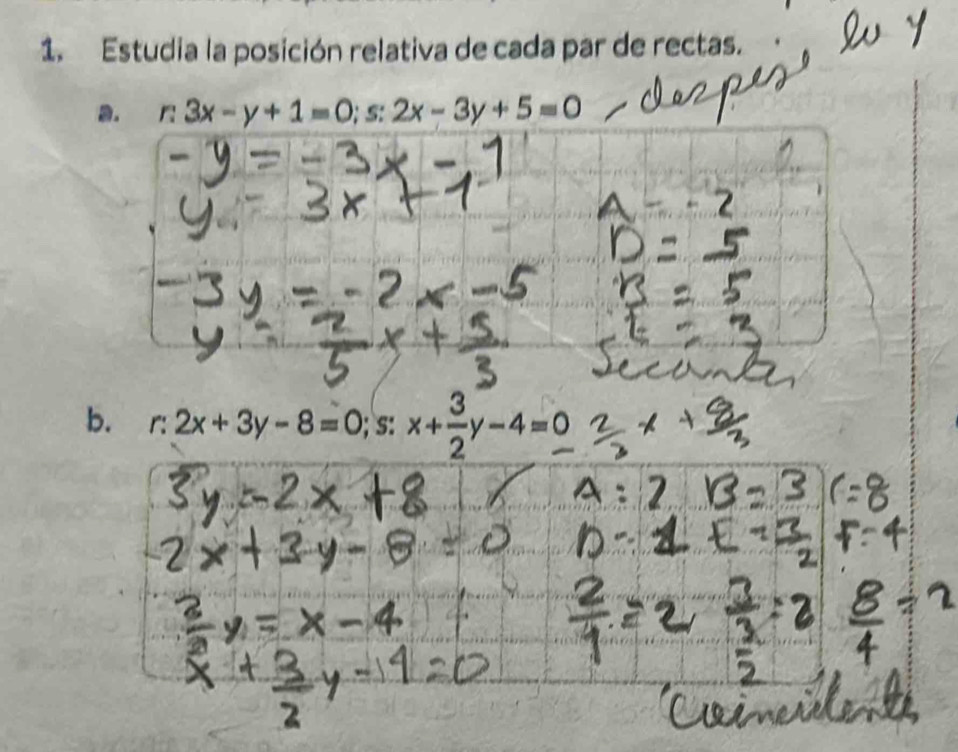 1. Estudia la posición relativa de cada par de rectas.
a. r: 3x - y + 1 = 0; s: 2x - 3y + 5 = 0
-y = -3x - 1
y = 3x + 1
-3y = -2x - 5
y = 2/5 x + 5/3
A = -2
D = 5
B = 5
E = 3
Secantes
b. r: 2x + 3y - 8 = 0; s: x + 3/2 y - 4 = 0
- 2/3 x + 8/3
3y = -2x + 8
2x + 3y - 8 = 0
y = x - 4
x + 3/2 y - 4 = 0
A = 2 B = 3 C = 8
D = 1 E = 3/2 F = 4
2/1 = 2 3/(3/2) = 2 8/4 = 2
Coincidentes